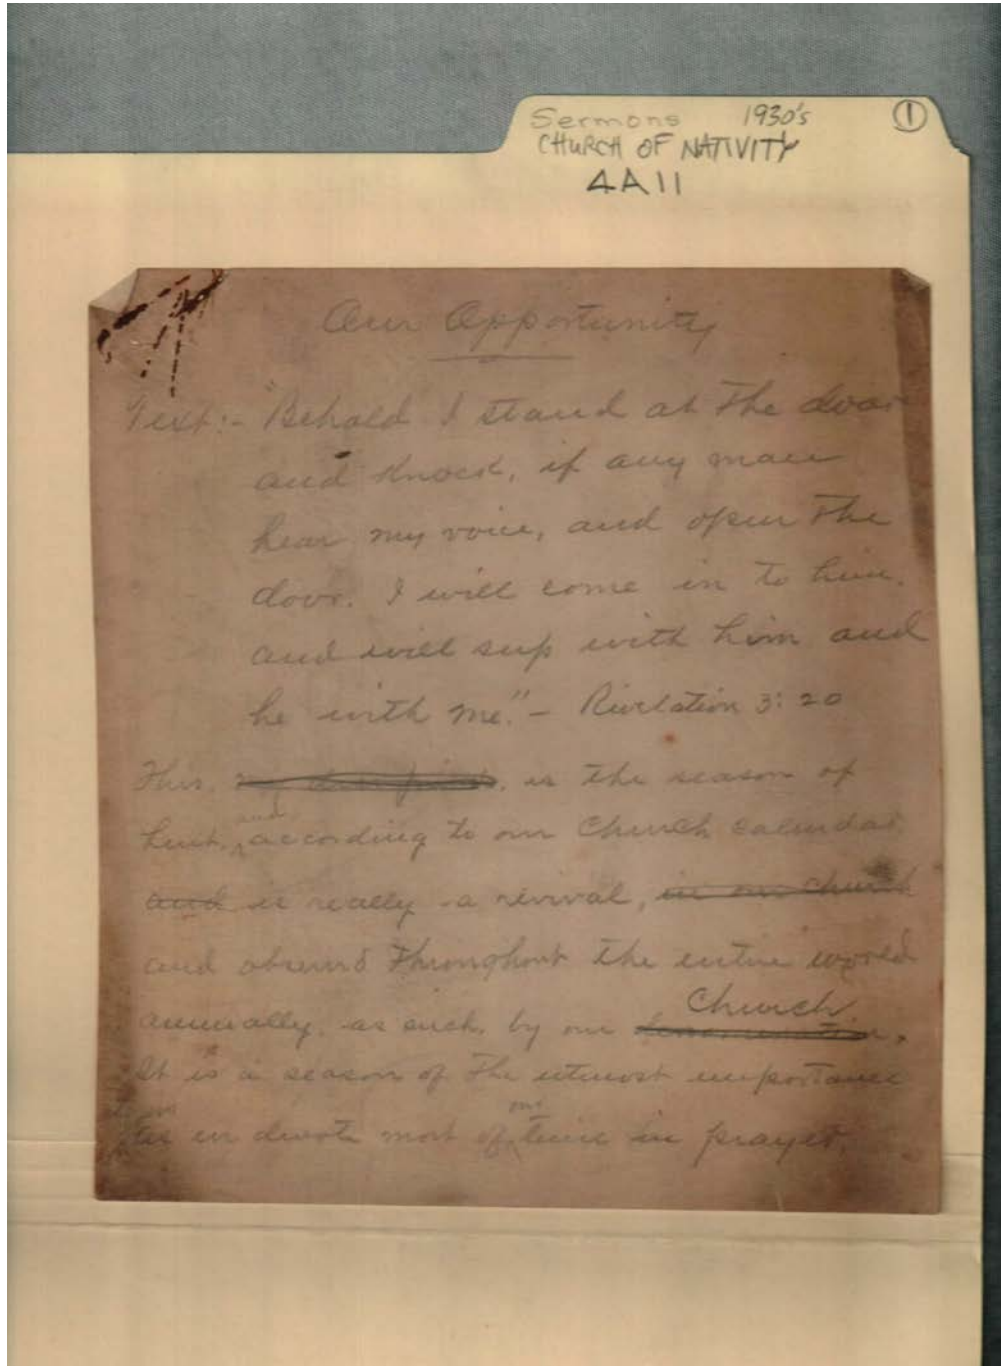 Sermons 1930's
①
CHURCH OF NATIVITY
4A11
Our Opportunity
Text:- "Behold I stand at the door
and knock, if any man
hear my voice, and open the
door. I will come in to him,
and will sup with him and
he with me." – Revelation 3:20
This, is the season of
Lent, and according to our Church calendar
and is really a revival, in our church
and observed throughout the entire world
annually, as such, by our Church.
It is a season of the utmost importance
we devote most of our time in prayer.